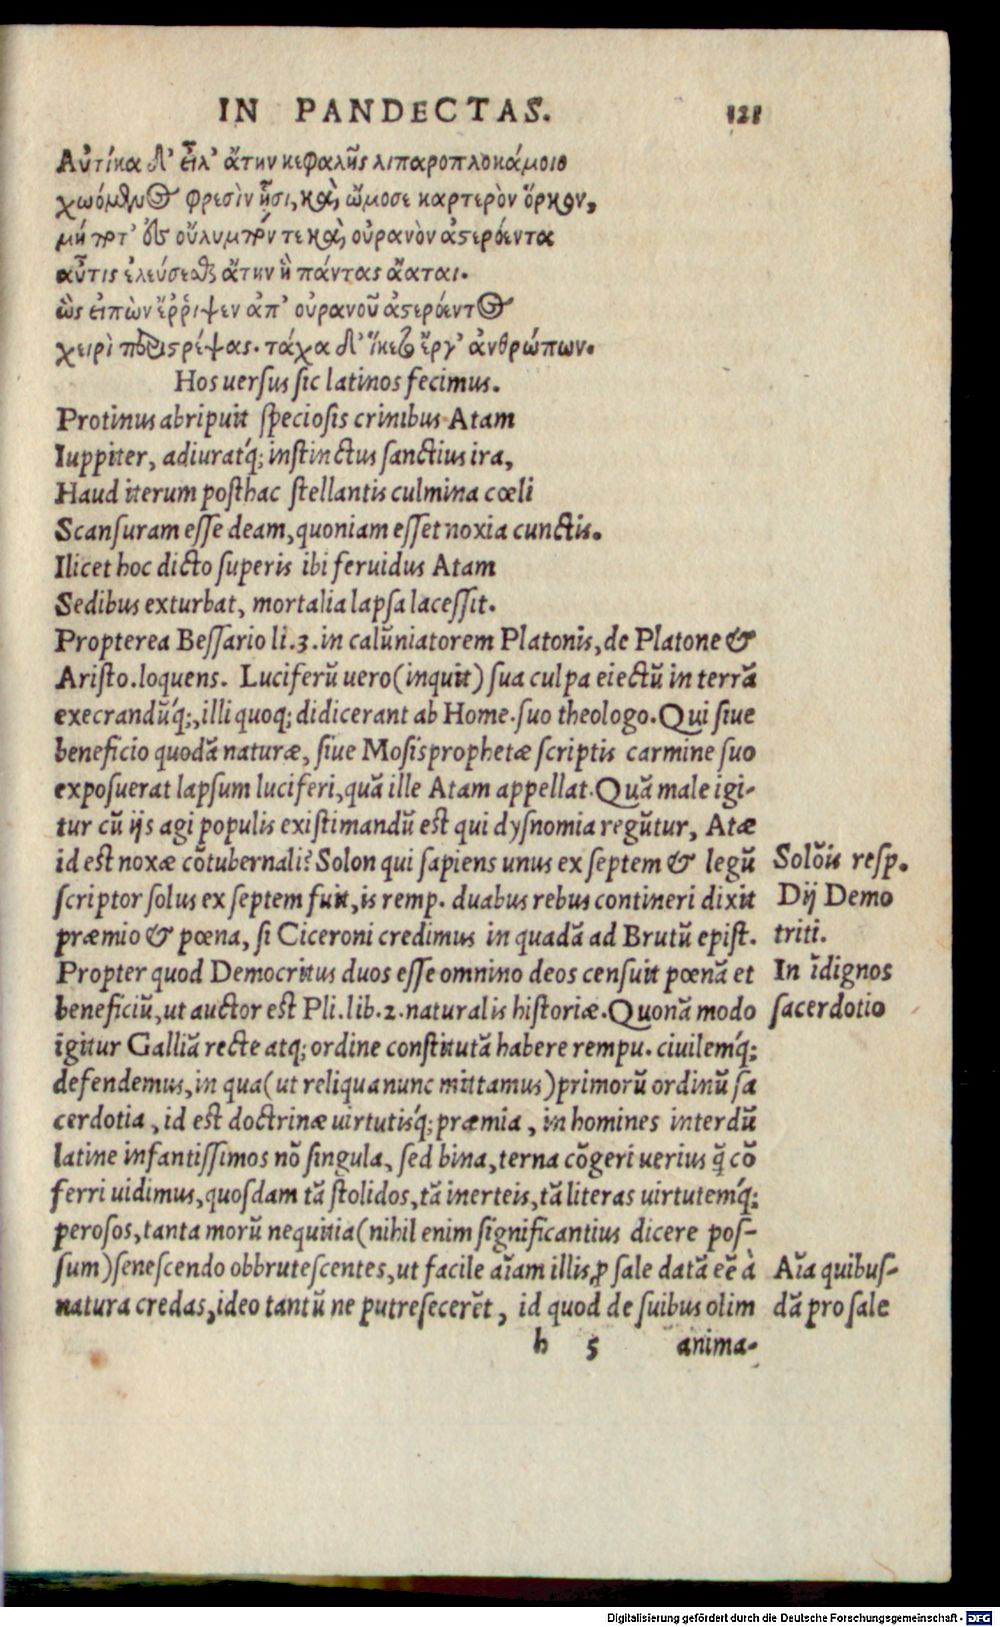 IN PANDECTAS. 121
Αὐτίκα δ' εἷλ' ἄτην κεφαλῆς λιπαροπλοκάμοιο
χωόμενος φρεσὶν ᾗσι, καὶ ὤμοσε καρτερὸν ὅρκον,
μή ποτ' ἐς οὔλυμπόν τε καὶ οὐρανὸν ἀστερόεντα
αὖτις ἐλεύσεσθαι ἄτην ἣ πάντας ἀᾶται.
ὣς εἰπὼν ἔῤῥιψεν ἀπ' οὐρανοῦ ἀστερόεντος
χειρὶ περιστρέψας. τάχα δ' ἵκετο ἔργ' ἀνθρώπων.
Hos uersus sic latinos fecimus.
Protinus abripuit speciosis crinibus Atam
Iuppiter, adiuratq́; instinctus sanctius ira,
Haud iterum posthac stellantis culmina cœli
Scansuram esse deam, quoniam esset noxia cunctis.
Ilicet hoc dicto superis ibi feruidus Atam
Sedibus exturbat, mortalia lapsa lacessit.
Propterea Bessario li.3. in calũniatorem Platonis, de Platone &
Aristo. loquens. Luciferũ uero (inquit) sua culpa eiectũ in terrã
execrandũq́;, illi quoq; didicerant ab Home. suo theologo. Qui siue
beneficio quodã naturæ, siue Mosis prophetæ scriptis carmine suo
exposuerat lapsum luciferi, quã ille Atam appellat. Quã male igi-
tur cũ ijs agi populis existimandũ est qui dysnomia regũtur, Atæ
id est noxæ cõtubernali? Solon qui sapiens unus ex septem & legũ
scriptor solus ex septem fuit, is remp. duabus rebus contineri dixit
præmio & pœna, si Ciceroni credimus in quadã ad Brutũ epist.
Propter quod Democritus duos esse omnino deos censuit pœnã et
beneficiũ, ut auctor est Pli. lib. 2. naturalis historiæ. Quonã modo
igitur Galliã recte atq; ordine constitutã habere rempu. ciuilemq́;
defendemus, in qua (ut reliqua nunc mittamus) primorũ ordinũ sa
cerdotia, id est doctrinæ uirtutisq́; præmia, in homines interdũ
latine infantissimos nõ singula, sed bina, terna cõgeri uerius q̃ cõ
ferri uidimus, quosdam tã stolidos, tã inerteis, tã literas uirtutemq́;
perosos, tanta morũ nequitia (nihil enim significantius dicere pos-
sum) senescendo obbrutescentes, ut facile aĩam illis ꝓ sale datã eẽ à
natura credas, ideo tantũ ne putrescerẽt, id quod de suibus olim
h 5 anima-
Solõis resp.
Dij Demo
triti.
In ĩdignos
sacerdotio
Aĩa quibus-
dã pro sale
Digitalisierung gefördert durch die Deutsche Forschungsgemeinschaft - DFG